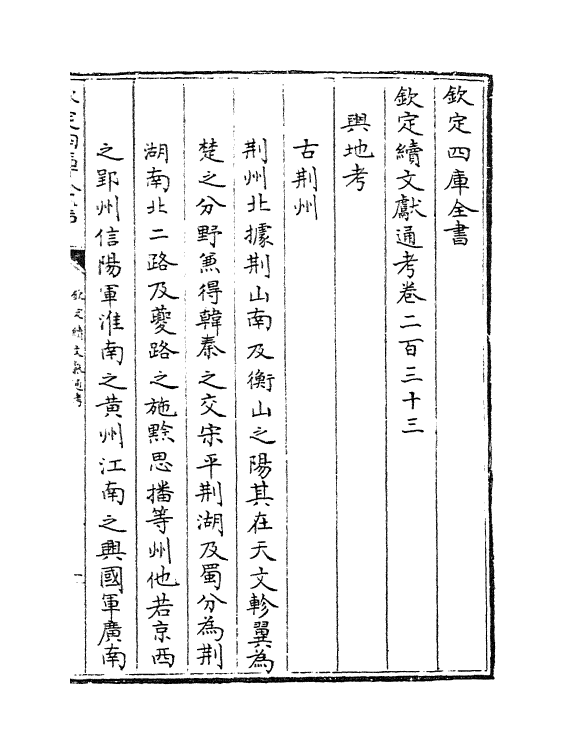 欽定四庫全書
欽定續文獻通考卷二百三十三
輿地考
古荆州
荆州北據荆山南及衡山之陽其在天文軫翼為
楚之分野兼得韓秦之交宋平荆湖及蜀分為荆
湖南北二路及夔路之施黔思播等州他若京西
之郢州信陽軍淮南之黄州江南之興國軍廣南
欽定四庫全書
欽定續文獻通考
一